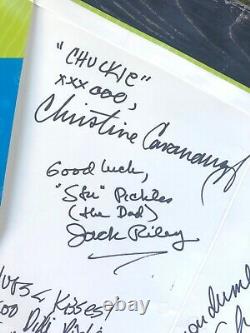 "CHUCKIE"
xxx ooo,
Christine Cavanaugh
Good luck,
"Stu" Pickles
(the Dad)
Jack Riley
Kisses
Dil